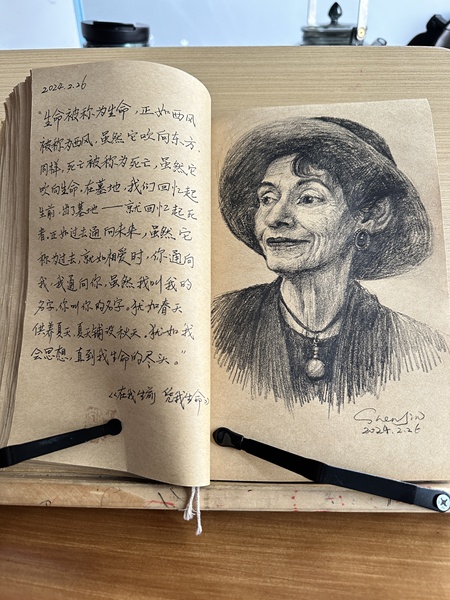 2024.2.26
“生命被称为生命，正如西风
被称为西风，虽然它吹向东方.
同样，死亡被称为死亡，虽然它
吹向生命，在墓地，我们回忆起
生前，出了墓地——就回忆起死
者，正如过去通向未来，虽然它
称为过去，就如相爱时，你通向
我，我通向你，虽然我叫我的
名字，你叫你的名字。犹如春天
供养夏天，夏天铺设秋天。犹如我
会思想，直到我生命的尽头。”
《在我生前 凭我生命》
ShenJin
2024.2.26